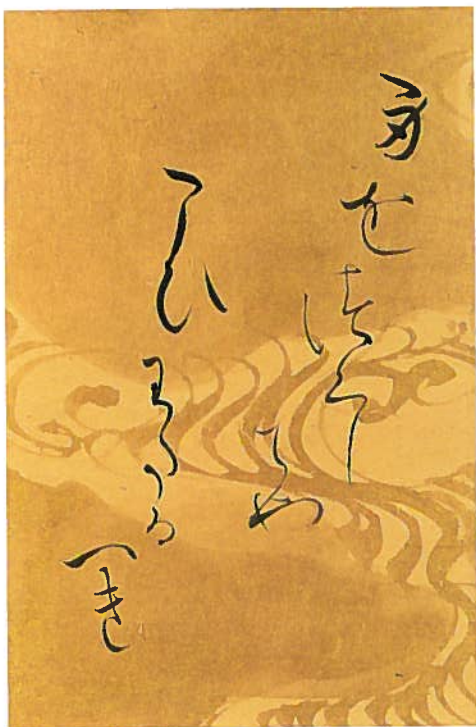 身をつくし
てや
こひわたる
へき